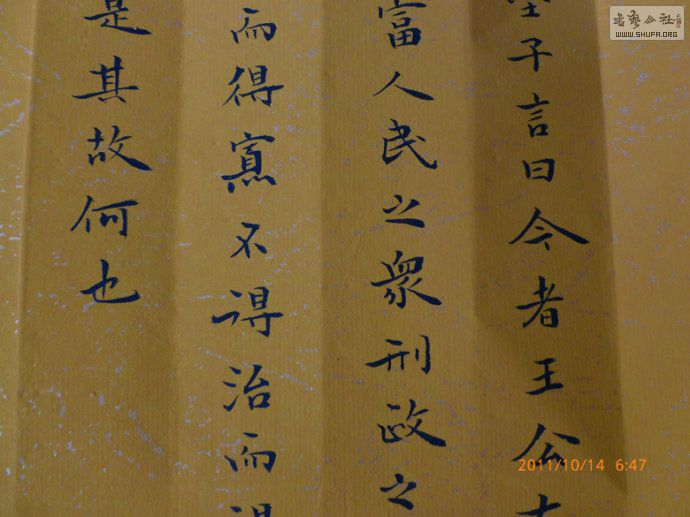 子言曰今者王公
富人民之衆刑政之
而得寡不得治而
是其故何也
2011/10/14 6:47
WWW.SHUFA.ORG